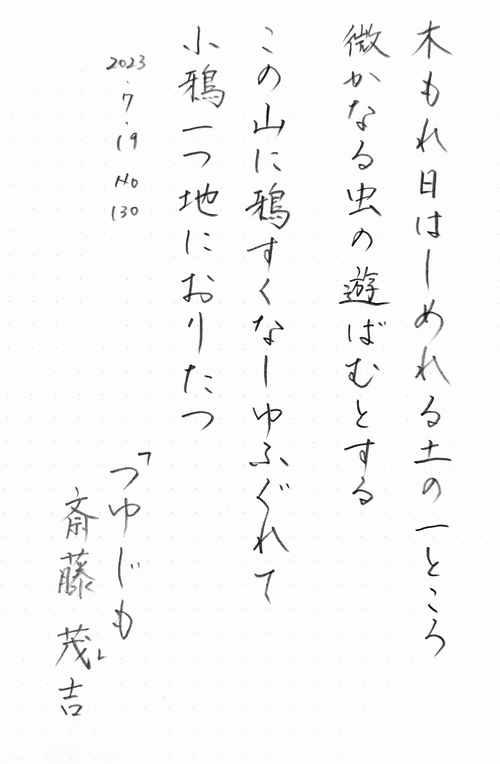 木もれ日はしめれる土の一ところ
微かなる虫の遊ばむとする
この山に鴉すくなしゆふぐれて
小鴉一つ地におりたつ
2023.7.19 No 130
「つゆじも」
斎藤茂吉